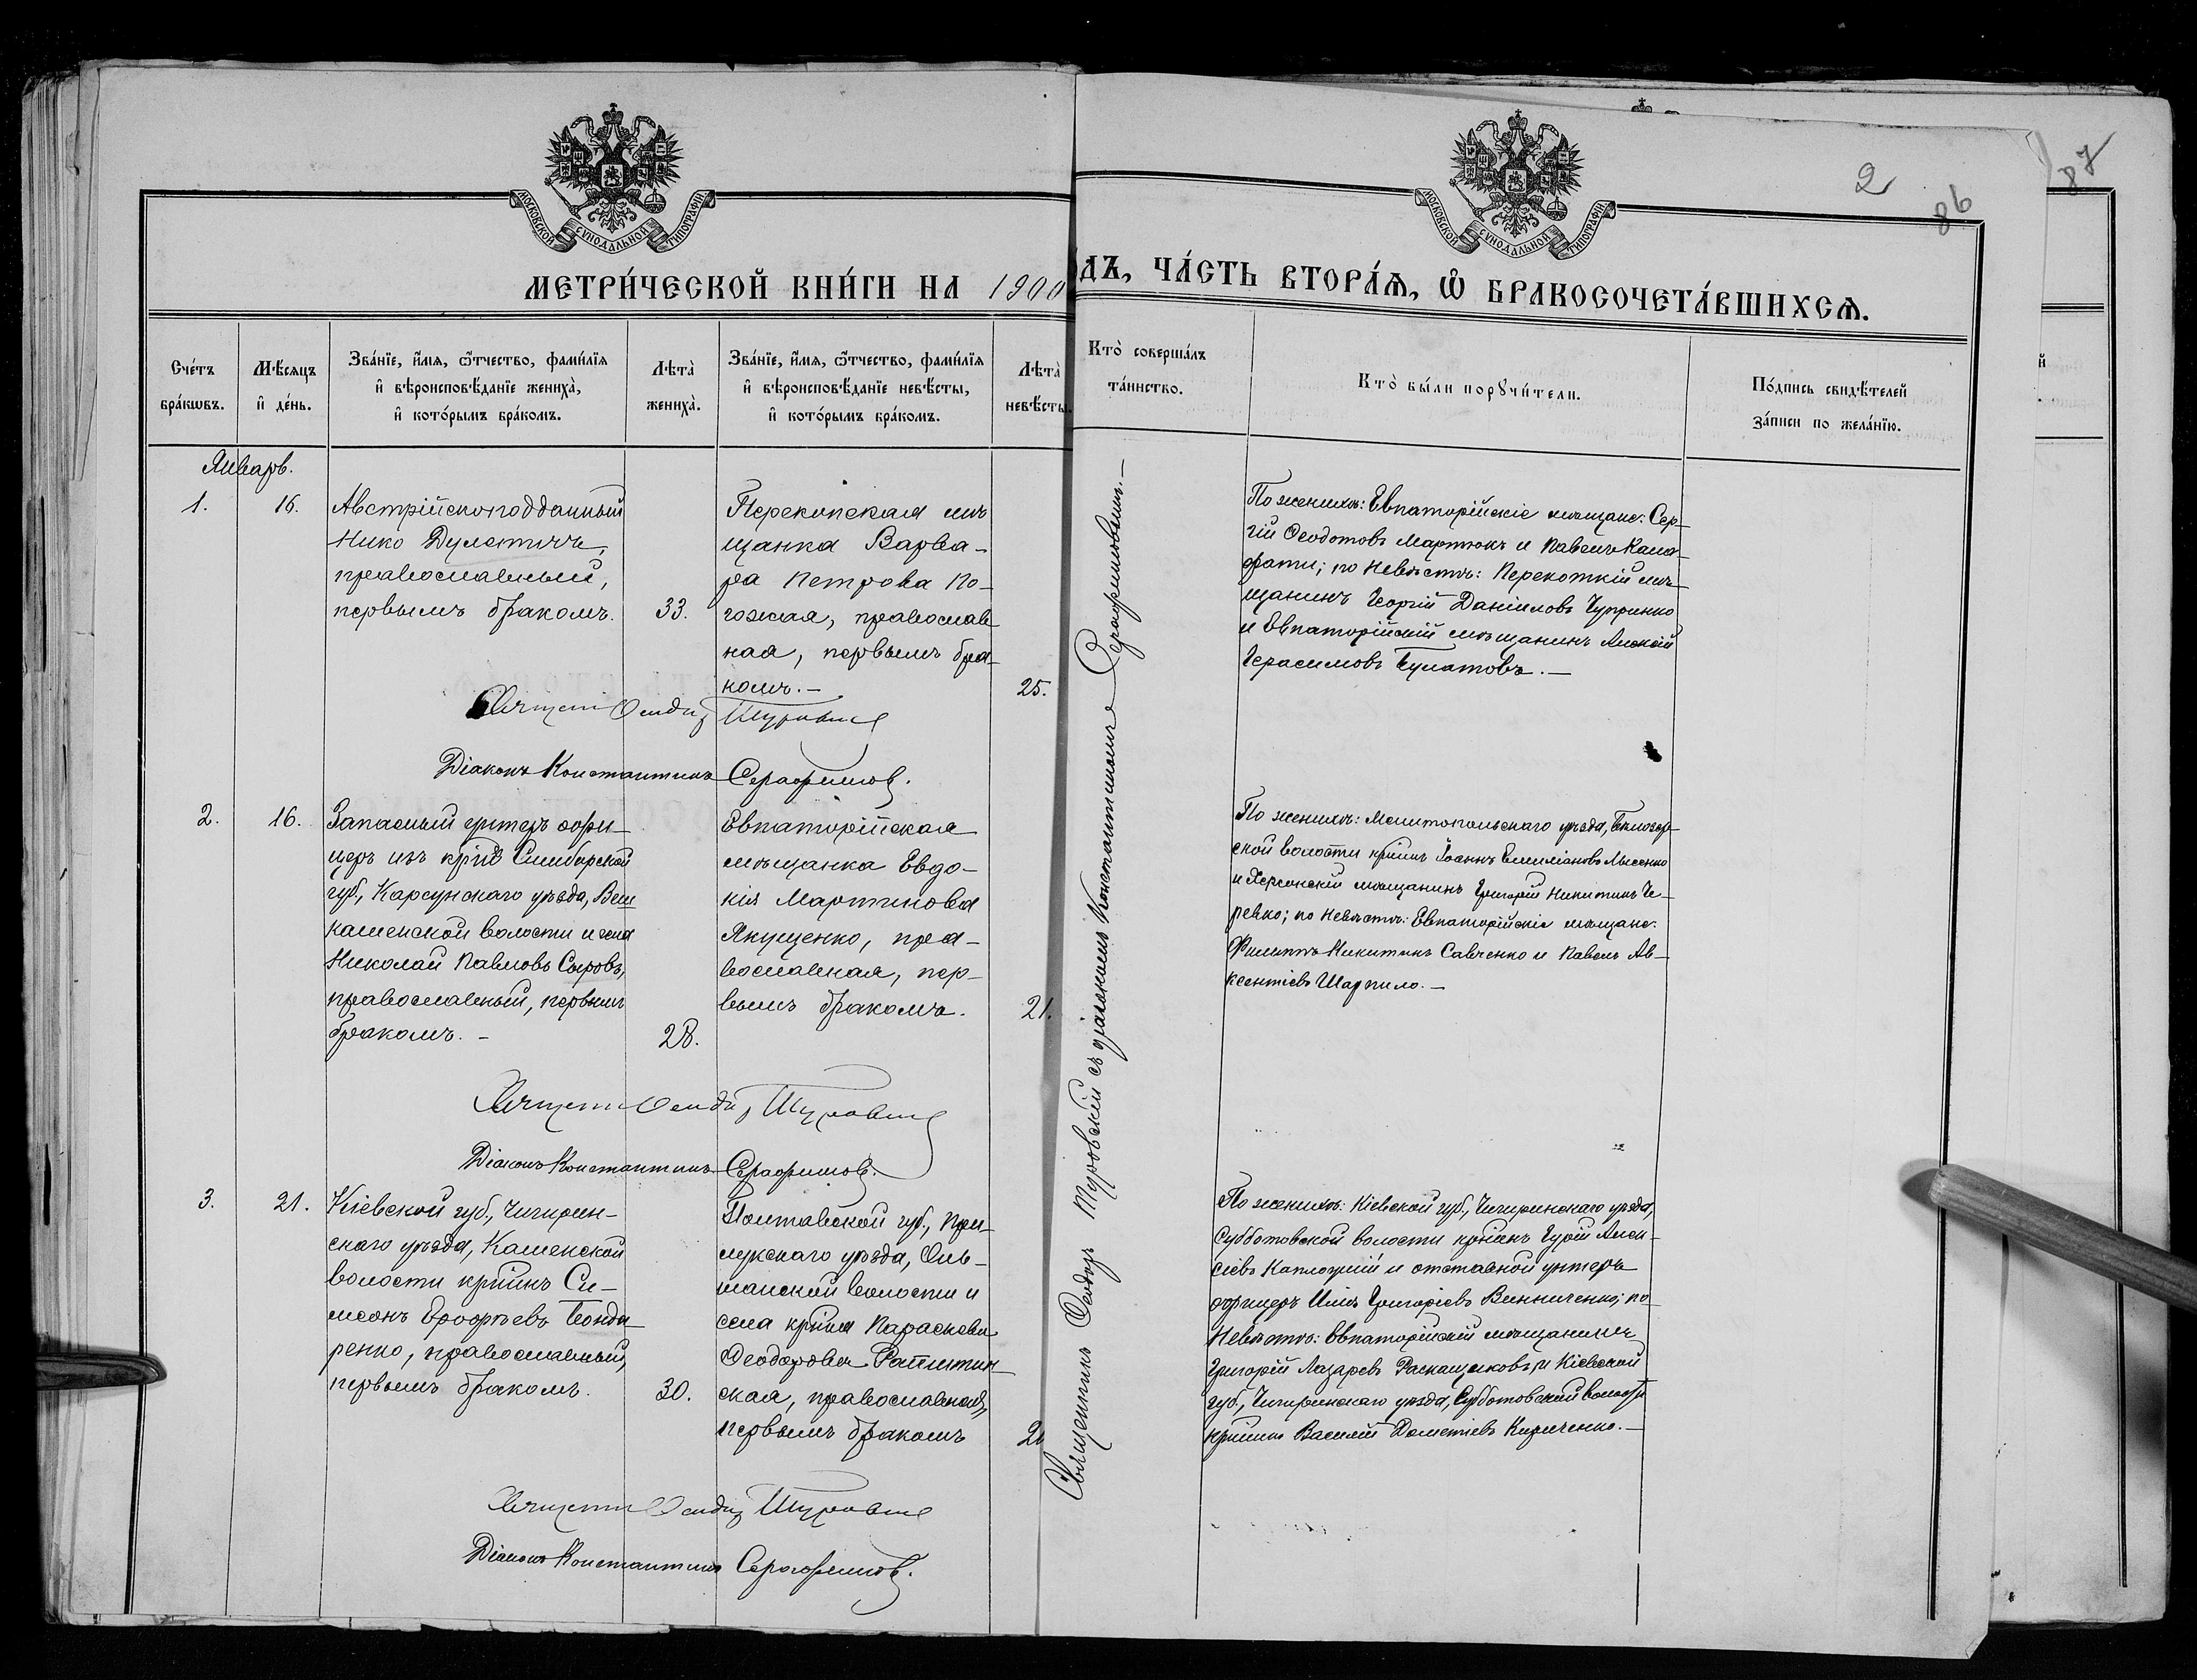 2
86
87
МОСКОВСКОЙ СѴНОДАЛЬНОЙ ТИПОГРАФІИ
МОСКОВСКОЙ СѴНОДАЛЬНОЙ ТИПОГРАФІИ
МЕТРИ́ЧЕСКОЙ КНИ́ГИ НА 1900
ДЪ, ЧА́СТЬ ВТОРА́Ѧ, Ѡ҆ БРАКОСОЧЕТА́ВШИХСѦ.
Сче́тъ
бра́кѡвъ.
Мѣ́сяцъ
и҆ де́нь.
Зва́нїе, и҆́мя, ѻ҆́тчество, фами́лїя
и҆ вѣроисповѣ́данїе жениха̀,
и҆ кото́рымъ бра́комъ.
Лѣта̀
жениха̀.
Зва́нїе, и҆́мя, ѻ҆́тчество, фами́лїя
и҆ вѣроисповѣ́данїе невѣ́сты,
и҆ кото́рымъ бра́комъ.
Лѣта̀
невѣ́сты.
Кто̀ соверша́лъ
та́инство.
Кто̀ бы́ли порꙋчи́тели.
По́дпись свидѣ́телей
за́писи по жела́нїю.
Январь.
1.
16.
Австрійскоподданный
Нико Дулетичъ,
православный,
первымъ бракомъ.
33.
Перекопская мѣ
щанка Варва-
ра Петрова По-
гожая, православ
ная, первымъ бра-
комъ.-
25.
По женихѣ: Евпаторійскіе мѣщане: Сер-
гій Ѳеодотовъ Мартюкъ и Павелъ Кала-
фати; по невѣстѣ: Перекопскій мѣ-
щанинъ Георгій Даніиловъ Чупринко
и Евпаторійскій мѣщанинъ Алексій
Герасимовъ Булатовъ.-
Діаконъ Константинъ Серафимовъ.
2.
16.
Запасный унтеръ офи-
церъ изъ кр-нъ Симбирской
губ., Карсунскаго уѣзда, Веш
каимской волости и села
Николай Павловъ Сыровъ,
православный, первымъ
бракомъ.-
28.
Евпаторійская
мѣщанка Евдо-
кія Мартинова
Якущенко, пра-
вославная, пер-
вымъ бракомъ.
21.
По женихѣ: Мелитопольскаго уѣзда, Бѣлозер-
ской волости кр-нинъ Іоаннъ Емиліановъ Лысенко
и Херсонскій мѣщанинъ Григорій Никитинъ Че-
ревко; по невѣстѣ: Евпаторійскіе мѣщане:
Филиппъ Никитинъ Савченко и Павелъ Ав-
ксентіевъ Шарпило.-
Діаконъ Константинъ Серафимовъ.
3.
21.
Кіевской губ., Чигирин-
скаго уѣзда, Каменской
волости кр-нинъ Си-
меонъ Ерофѣевъ Бонда-
ренко, православный,
первымъ бракомъ.
30.
Полтавской губ., При-
лукскаго уѣзда, Оль-
шанской волости и
села кр-нка Параскева
Ѳеодорова
ская, православная,
первымъ бракомъ
По женихѣ: Кіевской губ., Чигиринскаго уѣзда,
Субботовской волости кр-нинъ Гурій Алек-
сіевъ и отставной унтеръ
офицеръ Илія Григоріевъ Винниченко; по
невѣстѣ: Евпаторійскій мѣщанинъ
Григорій Лазаревъ Раскащиковъ, и Кіевской
губ., Чигиринскаго уѣзда, Субботовской волости
кр-нинъ Василій Дометіевъ Кириченко.-
Діаконъ Константинъ Серафимовъ.
Священникъ Ѳеодоръ Туровскій съ діакономъ Константиномъ Серафимовымъ.-